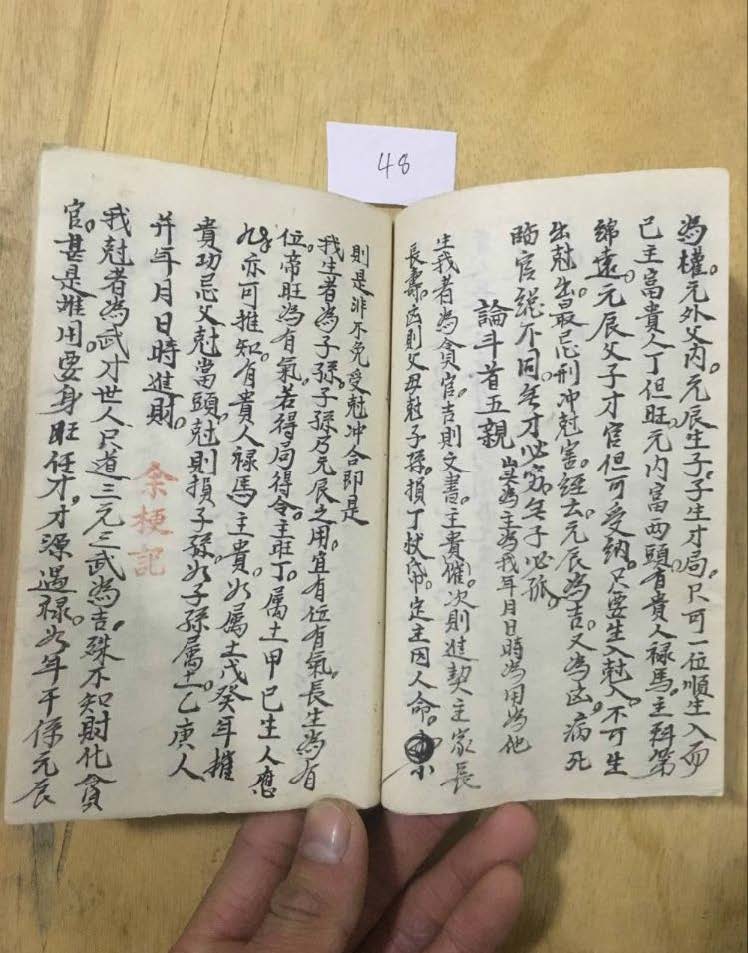 48
為權。元外父内。元辰生子。子生才局。只可一位順生入而
已主富貴人丁但旺元内富两頭有貴人禄馬。主科第
綿遠。元辰父子才官但可受納。只要生入尅入。不可生
出尅出。最忌刑冲尅害。經去元辰為吉。又為凶。病死
臨官總不同。無才必窮。無子必孤。
論斗首五親
山只為主為我年月日時為用為他
生我者為貪官。吉則文書。主貴催。次則進契主家長
長壽。凶則父母尅子孫。損丁狀。定主因人命。小
則是非不免受尅冲合即是
我生者為子孫。子孫乃元辰之用。宜有位有氣。長生為有
位。帝旺為有氣。若得局得令。主旺丁。属土甲巳生人應
如亦可推知。有貴人禄馬主貴。如属土戊癸年摧
貴功忌父尅當頭。尅則損子孫。如子孫属土。乙庚人
并年月日時進財。
余梗記
我尅者為武才世人只道三元三武為吉。殊不知財化貪
官。甚是难用。要身旺任才。才源過禄。如年干係元辰